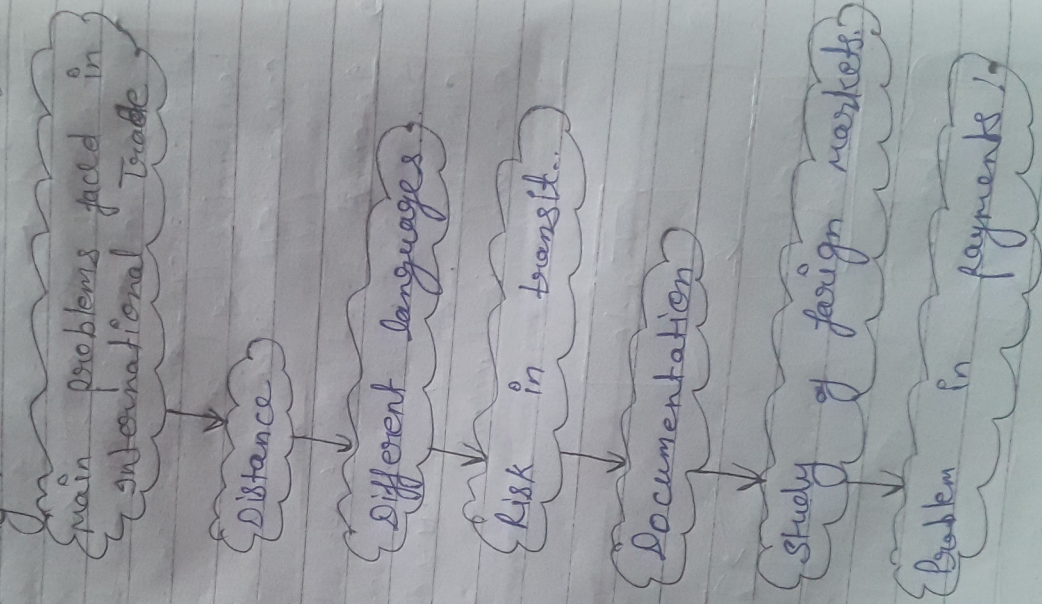 Main problems faced in
International Trade
Distance
Different languages.
Risk in transit..
Documentation
Study of farign markets.
Problem in payments!